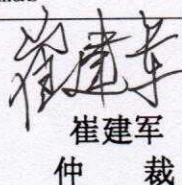 崔建军
崔建军
仲 裁